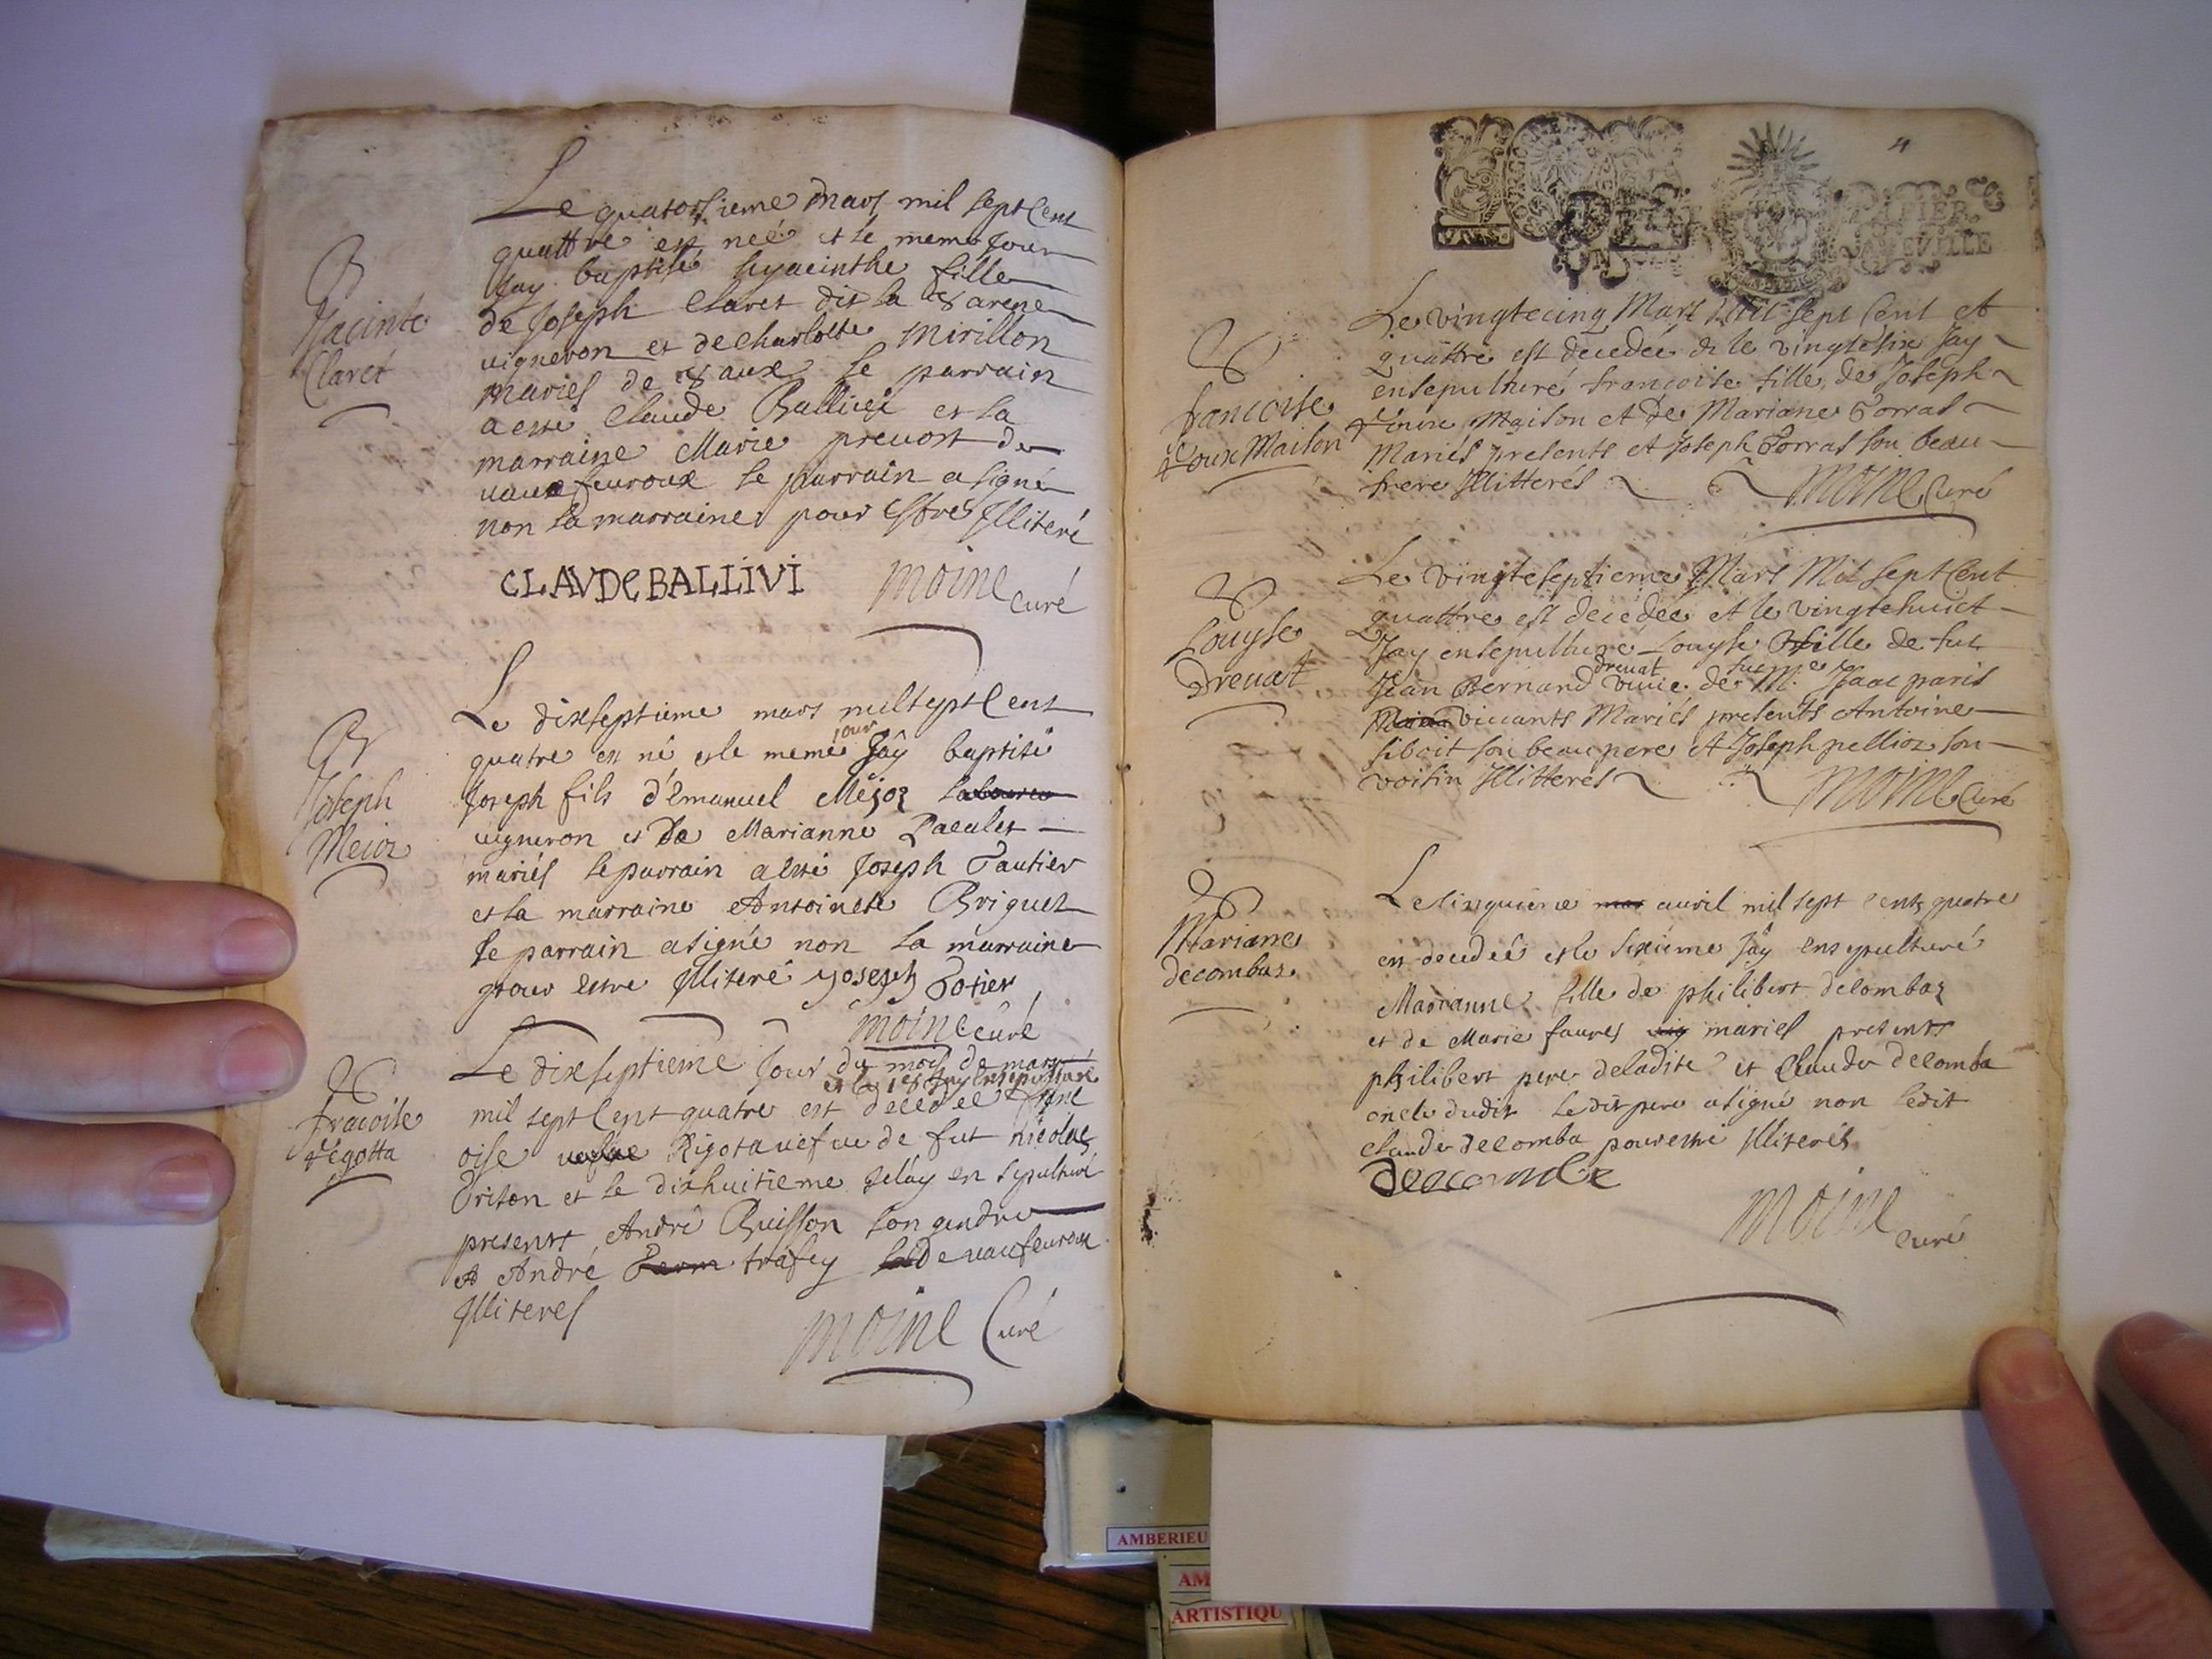 B
Hacinte
Claret
Le quatorsieme mars mil sept Cent
quattre est neé et le meme Jour
Jay baptisé hyacinthe fille
de Joseph Claret dit la varene
vigneron et de Charlotte Mirillon
mariés de vaux le parrain
a esté Claude Ballivi et la
marraine Marie prevost de
vaux feuroux le parrain a signé
non la marraine pour Estre Illiteré
CLAVDE BALLIVI
moine curé
B
Joseph
Meior
Le dixseptieme mars mil sept Cent
quatre est né et le meme jour Jaÿ baptisé
Joseph fils d'Emanuel Mejor laboureu
vigneron et de Marianne Pacalet
mariés le parrain a esté Joseph Pautier
et la marraine Antoinete Briguet
le parrain a signé non la marraine
pour Estre Illiteré Joseph Potier
moine curé
fracoise
Regotta
Le dixseptieme Jour du mois de mars
et le 18 Jay ensepulturé
mil sept Cent quatre est decedeé franc
oise vefve Rigota vefve de fut nicolas
Triton et le dixhuitieme Jelay en sepulturé
presents André Buisson son gendre
et André trafey de vaufeuroux
Illiterés
moine Curé
4
PAPIER
francoise
Roux Maison
Le vingtecinq Mars Mil sept Cent et
quattre est decedeé & le vingtesix Jay
ensepulturé francoise fille de Joseph
Roux Maison et de Mariane Torras
Mariés presents et Joseph Torras son beau
frere Illitterés
moine Curé
Louyse
Drevat
Le vingteseptieme Mars Mil sept Cent
quattre est decedeé et le vingtehuict
Jay ensepulturé Louyse fille de fut
Jean Bernand drevat vivie de fut me M.e Isaac paris
viccants Mariés presents Antoine
siboit son beau pere et Joseph pellioz son
voisin Illitterés
moine Curé
Mariane
decombaz
Le Cinquieme mar avril mil sept cents quatre
est decedeé et le sixieme Jaÿ ensepulturé
Marianne fille de philibert decombaz
et de Marie faures vig mariés presents
philibert pere de ladite et Claude decomba
oncle dudit le dit pere a signé non ledit
Claude decomba pour estre Illiterés
decombe
moine curé
AMBERIEU
AM
ARTISTIQU